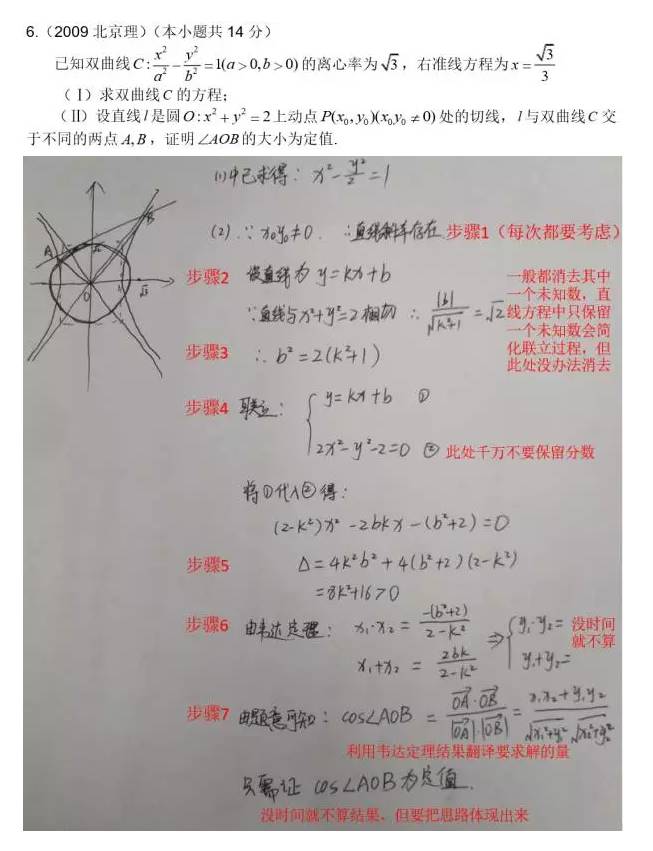 6.（2009 北京理）（本小题共 14 分）
已知双曲线 C : x²/a² − y²/b² = 1(a > 0, b > 0) 的离心率为 √3，右准线方程为 x = √3/3
（Ⅰ）求双曲线 C 的方程;
（Ⅱ）设直线 l 是圆 O : x² + y² = 2 上动点 P(x₀, y₀)(x₀y₀ ≠ 0) 处的切线，l 与双曲线 C 交
于不同的两点 A, B，证明 ∠AOB 的大小为定值.
(1)中已求得：x² − y²/2 = 1
(2) ∵ x₀y₀≠0. ∴直线斜率存在 步骤1（每次都要考虑）
A
B
O
√3
步骤2 设直线为 y = kx + b
∵直线与x²+y²=2相切 ∴ |b|/√(k²+1) = √2
一般都消去其中
一个未知数，直
线方程中只保留
一个未知数会简
化联立过程，但
此处没办法消去
步骤3 ∴ b² = 2(k²+1)
步骤4 联立：{ y = kx + b ①
2x² − y² − 2 = 0 ② 此处千万不要保留分数
将①代入②得：
(2−k²)x² − 2bkx − (b²+2) = 0
步骤5 Δ = 4k²b² + 4(b²+2)(2−k²)
= 8k²+16 > 0
步骤6 由韦达定理：x₁·x₂ = −(b²+2)/(2−k²) ⇒ { y₁·y₂ =
x₁+x₂ = 2bk/(2−k²) y₁+y₂ =
没时间
就不算
步骤7 由题意可知：cos∠AOB = OA·OB/|OA|·|OB| = x₁x₂+y₁y₂/√(x₁²+y₁²) √(x₂²+y₂²)
利用韦达定理结果翻译要求解的量
只需证 cos∠AOB 为定值.
没时间就不算结果，但要把思路体现出来